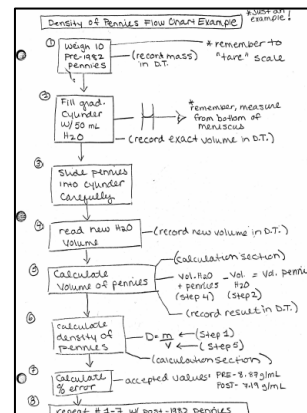 Density of Pennies Flow Chart Example
*Just an example!
① Weigh 10
Pre-1982
pennies
(record mass)
in D.T.
*remember to
"tare" scale
② Fill grad.
Cylinder
w/50 mL
H2O
*remember, measure
from bottom of
meniscus
(record exact volume in D.T.)
③ Slide pennies
into cylinder
Carefully
④ read new H2O
Volume
(record new volume in D.T.)
⑤ Calculate
Volume of pennies
(calculation section)
Vol. H2O - Vol. = Vol. pennies
+ pennies H2O
(step 4) (step 2)
(record result in D.T.)
⑥ calculate
density of
pennies
D = m ← (step 1)
V ← (step 5)
(calculation section)
⑦ Calculate
% error
accepted values: PRE-8.89g/mL
POST-7.19g/mL
⑧ repeat #1-7 w/ post-1982 pennies